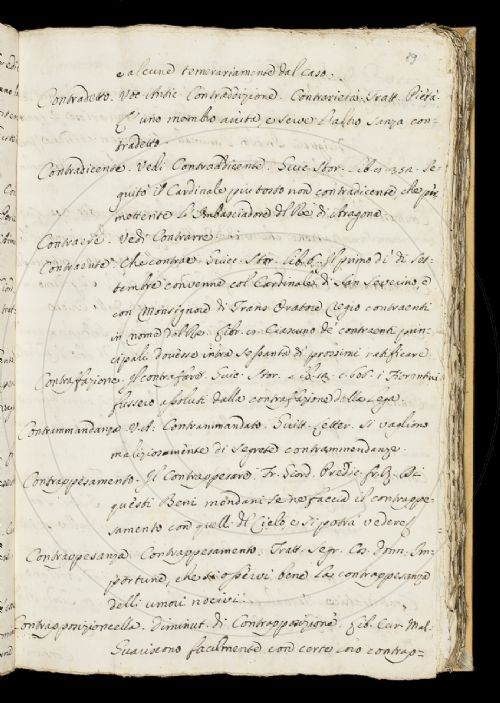 89
e alcune temerariamente dal caso.
Contradetto. Voc. Antic. Contraddizione. Contrarietà. Tratt. Pietà
L'uno membro aiuta, e serve l'altro sanza con-
tradetto.
Contradicente. Vedi Contraddicente. Guic. Stor. Lib. 352. Se
guitò il Cardinale più tosto non contradicente, che per
mettente l'Ambasciadore del Re di Aragona
Contraere. Vedi Contrarre.
Contraente. Che contrae. Guicc. Stor. Lib. 6. Il primo dì di Set-
tembre convenne col Cardinale di San Severino, e
con Monsignore di Trans Oratore Regio contraenti
in nome del Re. Lib. 10. Ciascuno de' contraenti prin-
cipali dovesse infra sessanta dì prossimi ratificare
Contraffazione. Il contraffare. Guic. Stor. i Fiorentini
fussero assoluti dalla contraffazione della Lega.
Contrammandanza. Vet. Contrammandato. Guitt. Letter. Si vagliono
maliziosamente di segrete contrammandanze.
Contrappesamento. Il Contrappesare. Fr. Giord. Predic. Di
questi Beni mondani se ne faccia il contrappe-
samento con quelli del Cielo, e si potrà vedere
Contrappesanza. Contrappesamento. Tratt. Segr. Cos. Donn. Im-
portuna, che si osservi bene la contrappesanza
delli umori nocivi.
Contrapposizioncella. Diminut. di Contrapposizione. Lib. Cur. Mal.
Guariscono facilmente con certe loro contrap-